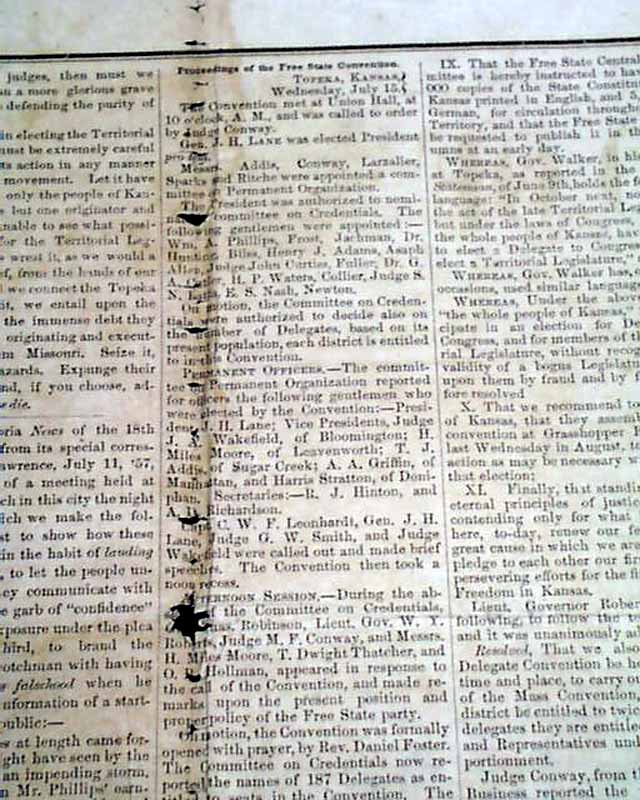 judges, then must we
n a more glorious grave
defending the purity of
in electing the Territorial
must be extremely careful
ts action in any manner
movement. Let it have
only the people of Kan-
e but one originator and
nable to see what possi-
for the Territorial Leg-
wrest it, as we would a
ef, from the hands of our
we connect the Topeka
it, we entail upon the
the immense debt they
originating and execut-
m Missouri. Seize it,
azards. Expunge their
nd, if you choose, ad-
die.
oria News of the 18th
from its special corres-
awrence, July 11, '57,
of a meeting held at
ch in this city the night
ich we make the fol-
t to show how these
in the habit of lauding
, to let the people un-
ey communicate with
e garb of "confidence"
xposure under the plea
hird, to brand the
otchman with having
s falsehood when he
nformation of a start-
public:—
es at length came for-
ght have seen by the
an impending storm.
n Mr. Phillips' earn-
Proceedings of the Free State Convention.
TOPEKA, KANSAS,
Wednesday, July 15.
The Convention met at Union Hall, at
10 o'clock, A. M., and was called to order
by Judge Conway.
Gen. J. H. LANE was elected President
pro tem.
Messrs. Addis, Conway, Larzalier,
Sparks and Ritche were appointed a com-
mittee on Permanent Organization.
The President was authorized to nomi-
committee on Credentials. The
following gentlemen were appointed:—
Wm. A. Phillips, Frost, Jachman, Dr.
Hunting, Bliss, Henry J. Adams, Asaph
Allen, Judge John Curtiss, Fuller, Dr. G.
A. H. P. Waters, Collier, Judge S.
N. E. S. Nash, Newton.
On motion, the Committee on Creden-
tials were authorized to decide also on
the number of Delegates, based on its
present population, each district is entitled
to in this Convention.
PERMANENT OFFICERS.—The commit-
tee Permanent Organization reported
for officers the following gentlemen who
were elected by the Convention:—Presi-
dent J. H. Lane; Vice Presidents, Judge
J. A. Wakefield, of Bloomington; H.
Miles Moore, of Leavenworth; T. J.
Addis, of Sugar Creek; A. A. Griffin, of
Manhattan, and Harris Stratton, of Doni-
phan. Secretaries:—R. J. Hinton, and
A. Richardson.
C. W. F. Leonhardi, Gen. J. H.
Lane, Judge G. W. Smith, and Judge
Wakefield were called out and made brief
speeches. The Convention then took a
noon recess.
AFTERNOON SESSION.—During the ab-
of the Committee on Credentials,
Robinson, Lieut. Gov. W. Y.
Roberts, Judge M. F. Conway, and Messrs.
H. Miles Moore, T. Dwight Thatcher, and
O. Hollman, appeared in response to
the call of the Convention, and made re-
marks upon the present position and
proper policy of the Free State party.
On motion, the Convention was formally
opened with prayer, by Rev. Daniel Foster.
The Committee on Credentials now re-
ported the names of 187 Delegates as en-
titled to seats in the Convention. The
IX. That the Free State Central
mittee is hereby instructed to hav
000 copies of the State Constitu
Kansas printed in English, and
German, for circulation through
Territory, and that the Free State
be requested to publish it in th
umns at an early day.
WHEREAS, Gov. Walker, in his
at Topeka, as reported in the
Statesman, of June 9th, holds the fo
language: "In October next, no
the act of the late Territorial Leg
but under the laws of Congress,
the whole people of Kansas, hav
to elect a Delegate to Congre
elect a Territorial Legislature,"
WHEREAS, Gov. Walker has,
occasions, used similar language
WHEREAS, Under the abov
"the whole people of Kansas,"
cipate in an election for De
Congress, and for members of th
rial Legislature, without reco
validity of a bogus Legislatu
upon them by fraud and by f
fore resolved
X. That we recommend to
of Kansas, that they assem
convention at Grasshopper F
last Wednesday in August, t
action as may be necessary w
that election;
XI. Finally, that standin
eternal principles of justic
contending only for what
here, to-day, renew our fe
great cause in which we are
pledge to each other our fir
persevering efforts for the fi
Freedom in Kansas.
Lieut. Governor Rober
following, to follow the
and it was unanimously a
Resolved, That we also
Delegate Convention be h
time and place, to carry o
of the Mass Convention
district be entitled to twic
delegates they are entitle
and Representatives und
portionment.
Judge Conway, from t
Business reported the